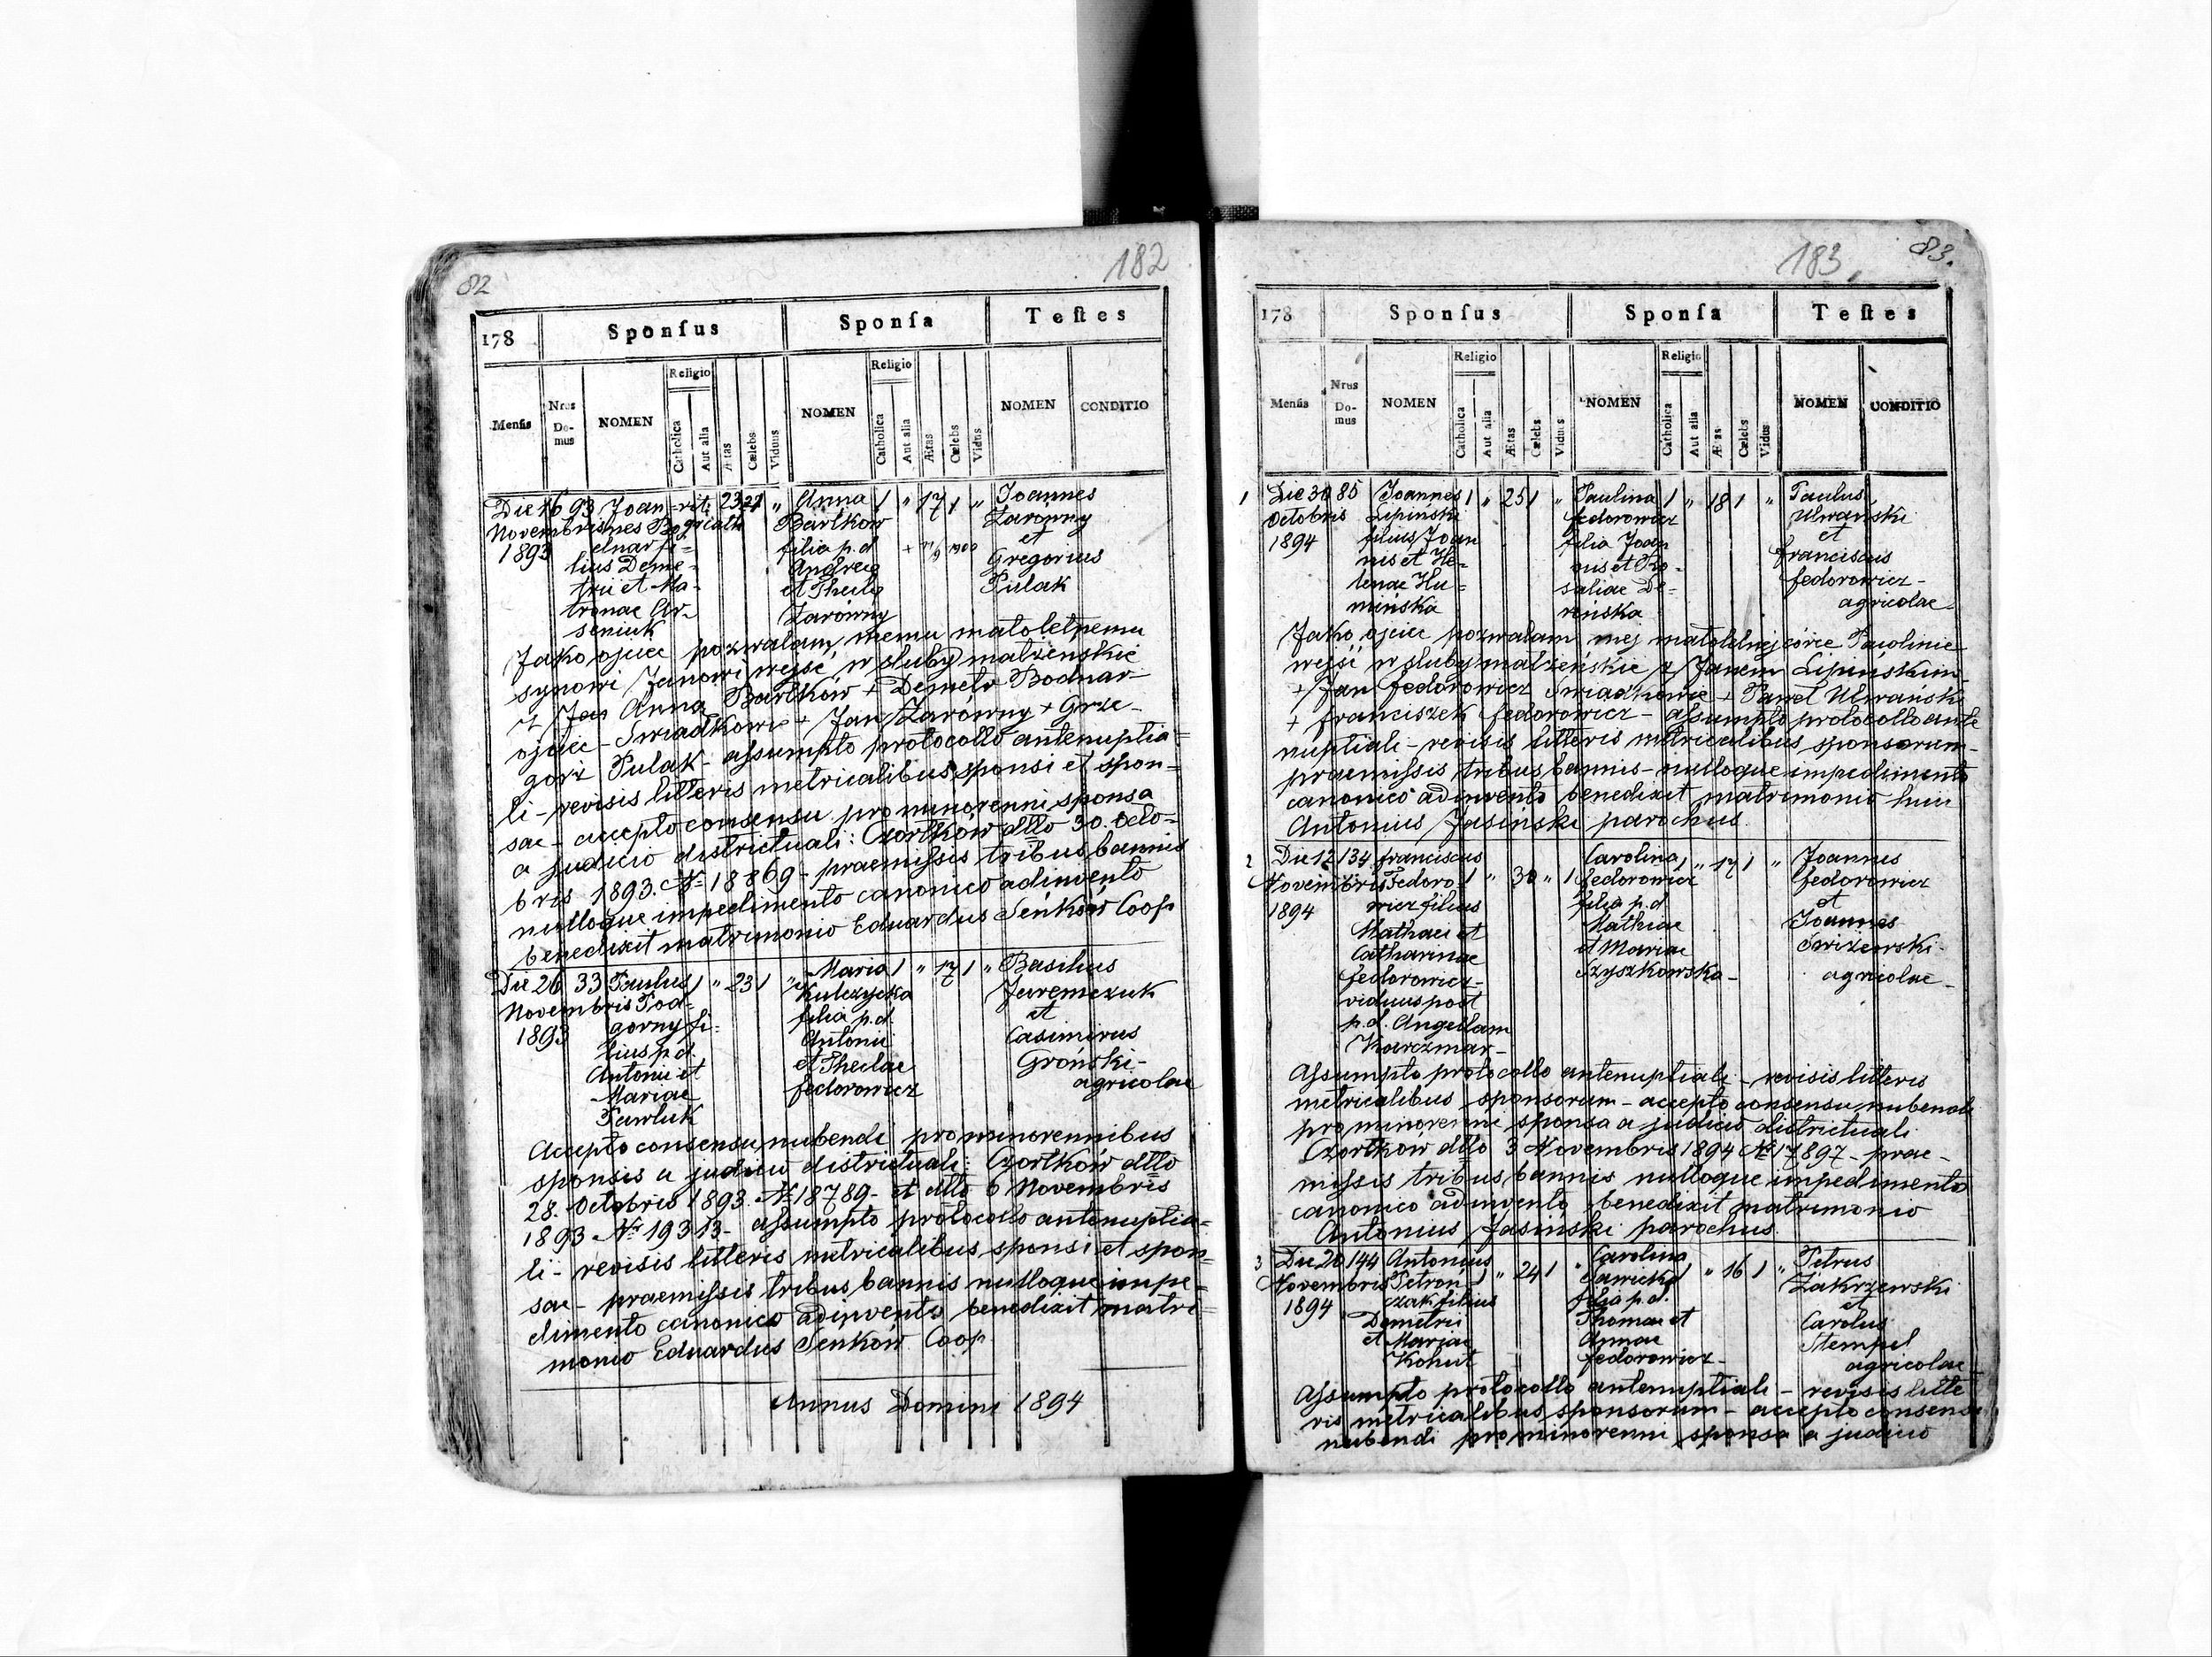 82
182
178
Sponſus
Sponſa
Teſtes
Menſis
Nrus Domus
NOMEN
Religio
Catholica
Aut alia
Ætas
Cælebs
Viduus
NOMEN
Religio
Catholica
Aut alia
Ætas
Cælebs
Vidus
NOMEN
CONDITIO
Die 16 93 Joan= rit. 23 1 „ Anna 1 „ 17 1 „ Joannes
Novembris nes Bo= Bartkow Zarówny
1893 dnar fi= filia p.d. + 1900 et
lius Deme= Andreae Gregorius
trii et Ma= et Thecla Pulak
tronae Ar= Zarówny
seniuk
Jako ojciec pozwalam memu małoletnemu
synowi Janowi wejsć w sluby malżenskie
z Anna Bartków + Demetr Bodnar
ojciec - Swiadkowie + Jan Zarówny + Grze-
gorz Pulak - assumpto protocollo antenuptia=
li - revisis litteris metricalibus sponsi et spon=
sae - accepto consensu pro minorenni sponsa
a judicio districtuali: Czortków dtto 30. Octo=
bris 1893. № 18869 - praemissis tribus bannis
nulloque impedimento canonico adinvento
benedixit matrimonio Eduardus Senków Coop
Die 26 33 Paulus 1 „ 23 1 „ Maria 1 „ 17 1 „ Basilius
Novembris Pod= Kulczycka Jaremczuk
1893 gorny fi= filia p.d. et
lius p.d. Antonii Casimirus
Antonii et et Theclae Groński-
Mariae fedorowicz agricolae
Pawluk
Accepto consensu nubendi pro minorennibus
sponsis a judicio districtuali: Czortków dtto
28. Octobris 1893. № 18789- et dtto 6 Novembris
1893 № 19313- assumpto protocollo antenuptia=
li - revisis litteris metricalibus sponsi et spon=
sae - praemissis tribus bannis nulloque impe=
dimento canonico adinvento benedixit matri=
monio Eduardus Senków Coop
Annus Domini 1894
183
83.
178
Sponſus
Sponſa
Teſtes
Menſis
Nrus Domus
NOMEN
Religio
Catholica
Aut alia
Ætas
Cælebs
Viduus
NOMEN
Religio
Catholica
Aut alia
Cælebs
Vidus
NOMEN
CONDITIO
1 Die 30 85 Joannes 1 „ 25 1 „ Paulina 1 „ 18 1 „ Paulus
Octobris Lipinski fedorowicz Ulwanski
1894 filius Joan filia Joan et
nis et He= nis et Ro= franciscus
lenae Hu= saliae De= fedorowicz-
mińska reńska agricolae-
Jako ojciec pozwalam mej małoletniej córce Paulinie
wejść w sluby malżeńskie z Janem Lipinskim-
+ Jan fedorowicz Swiadkowie + Paweł Ulwański
+ franciszek fedorowicz - assumpto protocollo ante
nuptiali - revisis litteris metricalibus sponsorum-
praemissis tribus bannis - nulloque impedimento
canonico adinvento benedixit matrimonio huic
Antonius Jasiński parochus.
2 Die 12 134 franciscus Carolina 1 „ 17 1 „ Joannes
Novembris Fedoro= 1 „ 30 „ 1 fedorowicz fedorowicz
1894 wicz filius filia p.d. et
Mathaei et Mathiae Joannes
Catharinae et Mariae Swiżewski-
fedorowicz- Szyszkowska- agricolae-
viduus post
p.d. Angellam
Karczmar-
Assumpto protocollo antenuptiali - revisis litteris
metricalibus sponsorum - accepto consensu nubendi
pro minorenni sponsa a judicio districtuali
Czortków dtto 3 Novembris 1894 № 17897 - prae-
missis tribus bannis nulloque impedimento
canonico adinvento benedixit matrimonio
Antonius Jasiński parochus.
3 Die 20 144 Antonius Carolina Petrus
Novembris Petroń= 1 „ 24 1 „ 1 „ 16 1 „ Zakrzewski
1894 czak filius filia p.d. et
Demetrii Thomae et Carolus
et Mariae Annae Stempel
Kohut fedorowicz- agricolae
Assumpto protocollo antenuptiali - revisis litte
ris metricalibus sponsorum - accepto consensu
nubendi pro minorenni sponsa a judicio